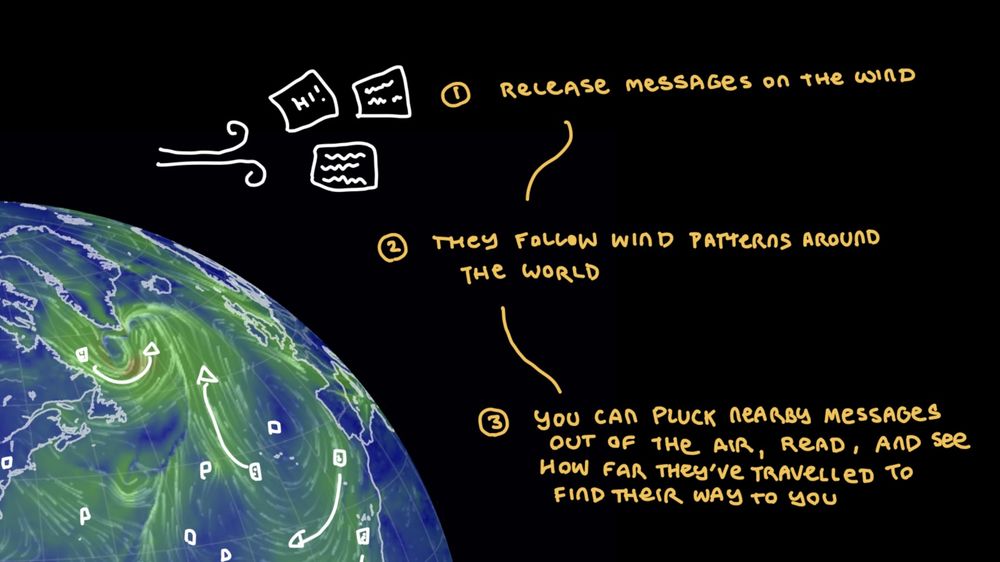 HI!
① RELEASE MESSAGES ON THE WIND
② THEY FOLLOW WIND PATTERNS AROUND
THE WORLD
③ YOU CAN PLUCK NEARBY MESSAGES
OUT OF THE AIR, READ, AND SEE
HOW FAR THEY'VE TRAVELLED TO
FIND THEIR WAY TO YOU